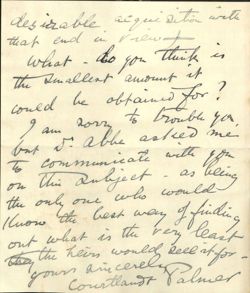 desirable acquisition with
that end in view -
What - do you think is
the smallest amount it
could be obtained for?
I am sorry to trouble you
but Dr Abbe asked me
to communicate with you
on this subject - as being
the only one who would
know the best way of finding
out what is the very least
they the heirs would sell it for -
yours sincerely
Courtlandt Palmer